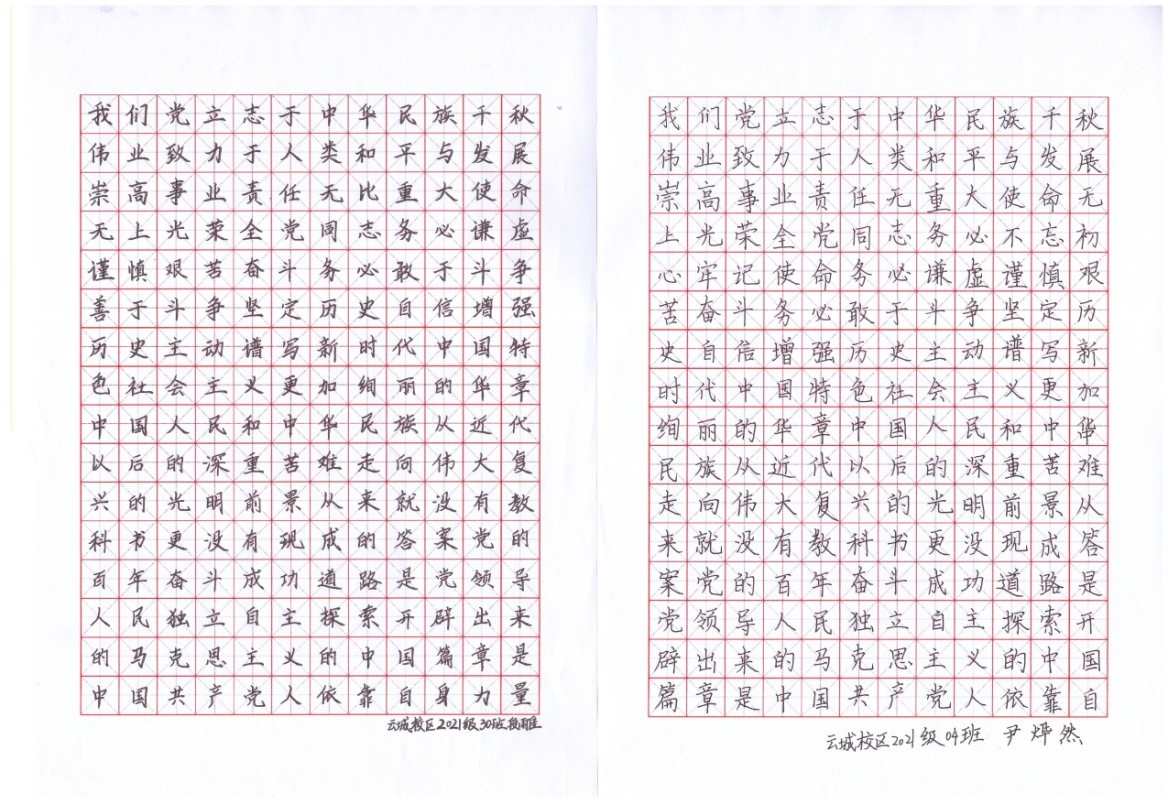 我们党立志于中华民族千秋
伟业致力于人类和平与发展
崇高事业责任无比重大使命
无上光荣全党同志务必谦虚
谨慎艰苦奋斗务必敢于斗争
善于斗争坚定历史自信增强
历史主动谱写新时代中国特
色社会主义更加绚丽的华章
中国人民和中华民族从近代
以后的深重苦难走向伟大复
兴的光明前景从来就没有教
科书更没有现成的答案党的
百年奋斗成功道路是党领导
人民独立自主探索开辟出来
的马克思主义的中国篇章是
中国共产党人依靠自身力量
云城校区2021级30班
我们党立志于中华民族千秋
伟业致力于人类和平与发展
崇高事业责任无重大使命无
上光荣全党同志务必不忘初
心牢记使命务必谦虚谨慎艰
苦奋斗务必敢于斗争坚定历
史自信增强历史主动谱写新
时代中国特色社会主义更加
绚丽的华章中国人民和中华
民族从近代以后的深重苦难
走向伟大复兴的光明前景从
来就没有教科书更没现成答
案党的百年奋斗成功道路是
党领导人民独立自主探索开
辟出来的马克思主义的中国
篇章是中国共产党人依靠自
云城校区2021级04班 尹烨然